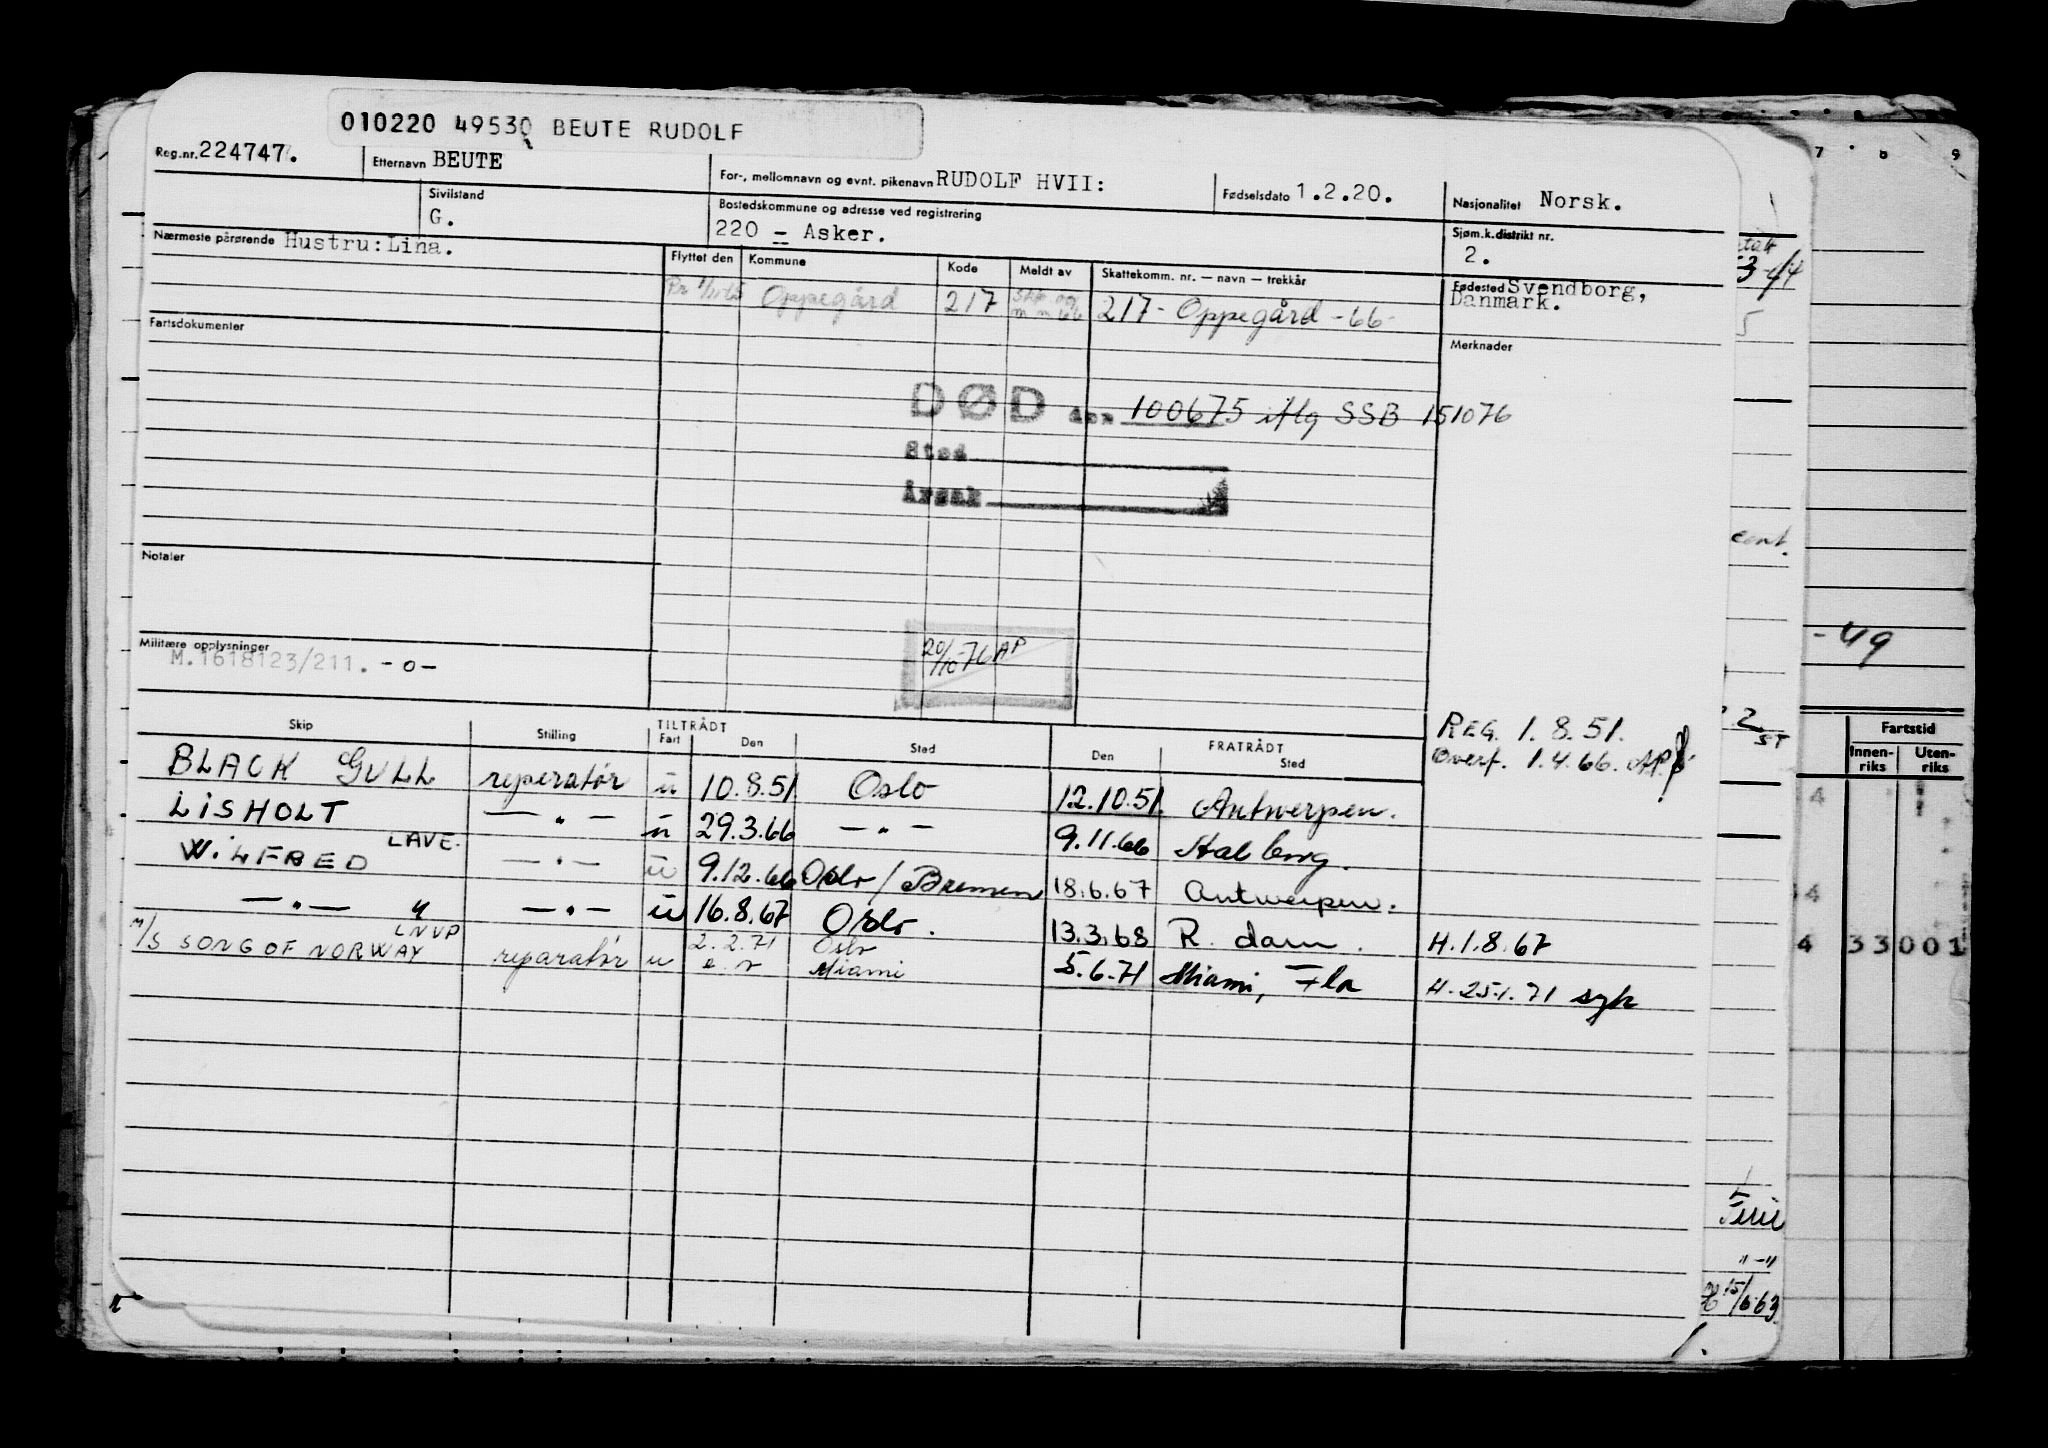 010220 49530 BEUTE RUDOLF
Reg.nr. 224747. Etternavn BEUTE For-, mellomnavn og evnt. pikenavn RUDOLF HVII: Fødselsdato 1.2.20. Nasjonalitet Norsk.
Sivilstand G. Bostedskommune og adresse ved registrering 220 - Asker. Sjøm.k.distrikt nr. 2.
Nærmeste pårørende Hustru: Lina. Fødested Svendborg, Danmark.
Flyttet den Kommune Kode Meldt av Skattekomm. nr. — navn — trekkår
Oppegård 217 217 - Oppegård - 66 -
Fartsdokumenter Merknader
DØD den 100675 iflg SSB 151076
Sted
Årsak
Notater
Militære opplysninger M.1618123/211. -o-
20/10-76 AP
REG. 1.8.51.
Overf. 1.4.66.
Skip Stilling TILTRÅDT Fart Den Sted FRATRÅDT Den Sted
BLACK GULL reperatør u 10.8.51. Oslo 12.10.51. Antwerpen.
LISHOLT — " — u 29.3.66 — " — 9.11.66
WILFRED LAVE. — " — u 9.12.66 Oslo / Bremen 18.6.67 Antwerpen.
— " — " — " — u 16.8.67 Oslo. 13.3.68 R. dam. H. 1.8.67
M/S SONG OF NORWAY LNVP reparatør u 2.2.71 Oslo Miami 5.6.71 Miami, Fla H. 25.1.71 syk
7 8 9
cont.
- 49
Fartstid
Innen-riks Uten-riks
4 33001
Ferie
" - "
15/6 63
1.